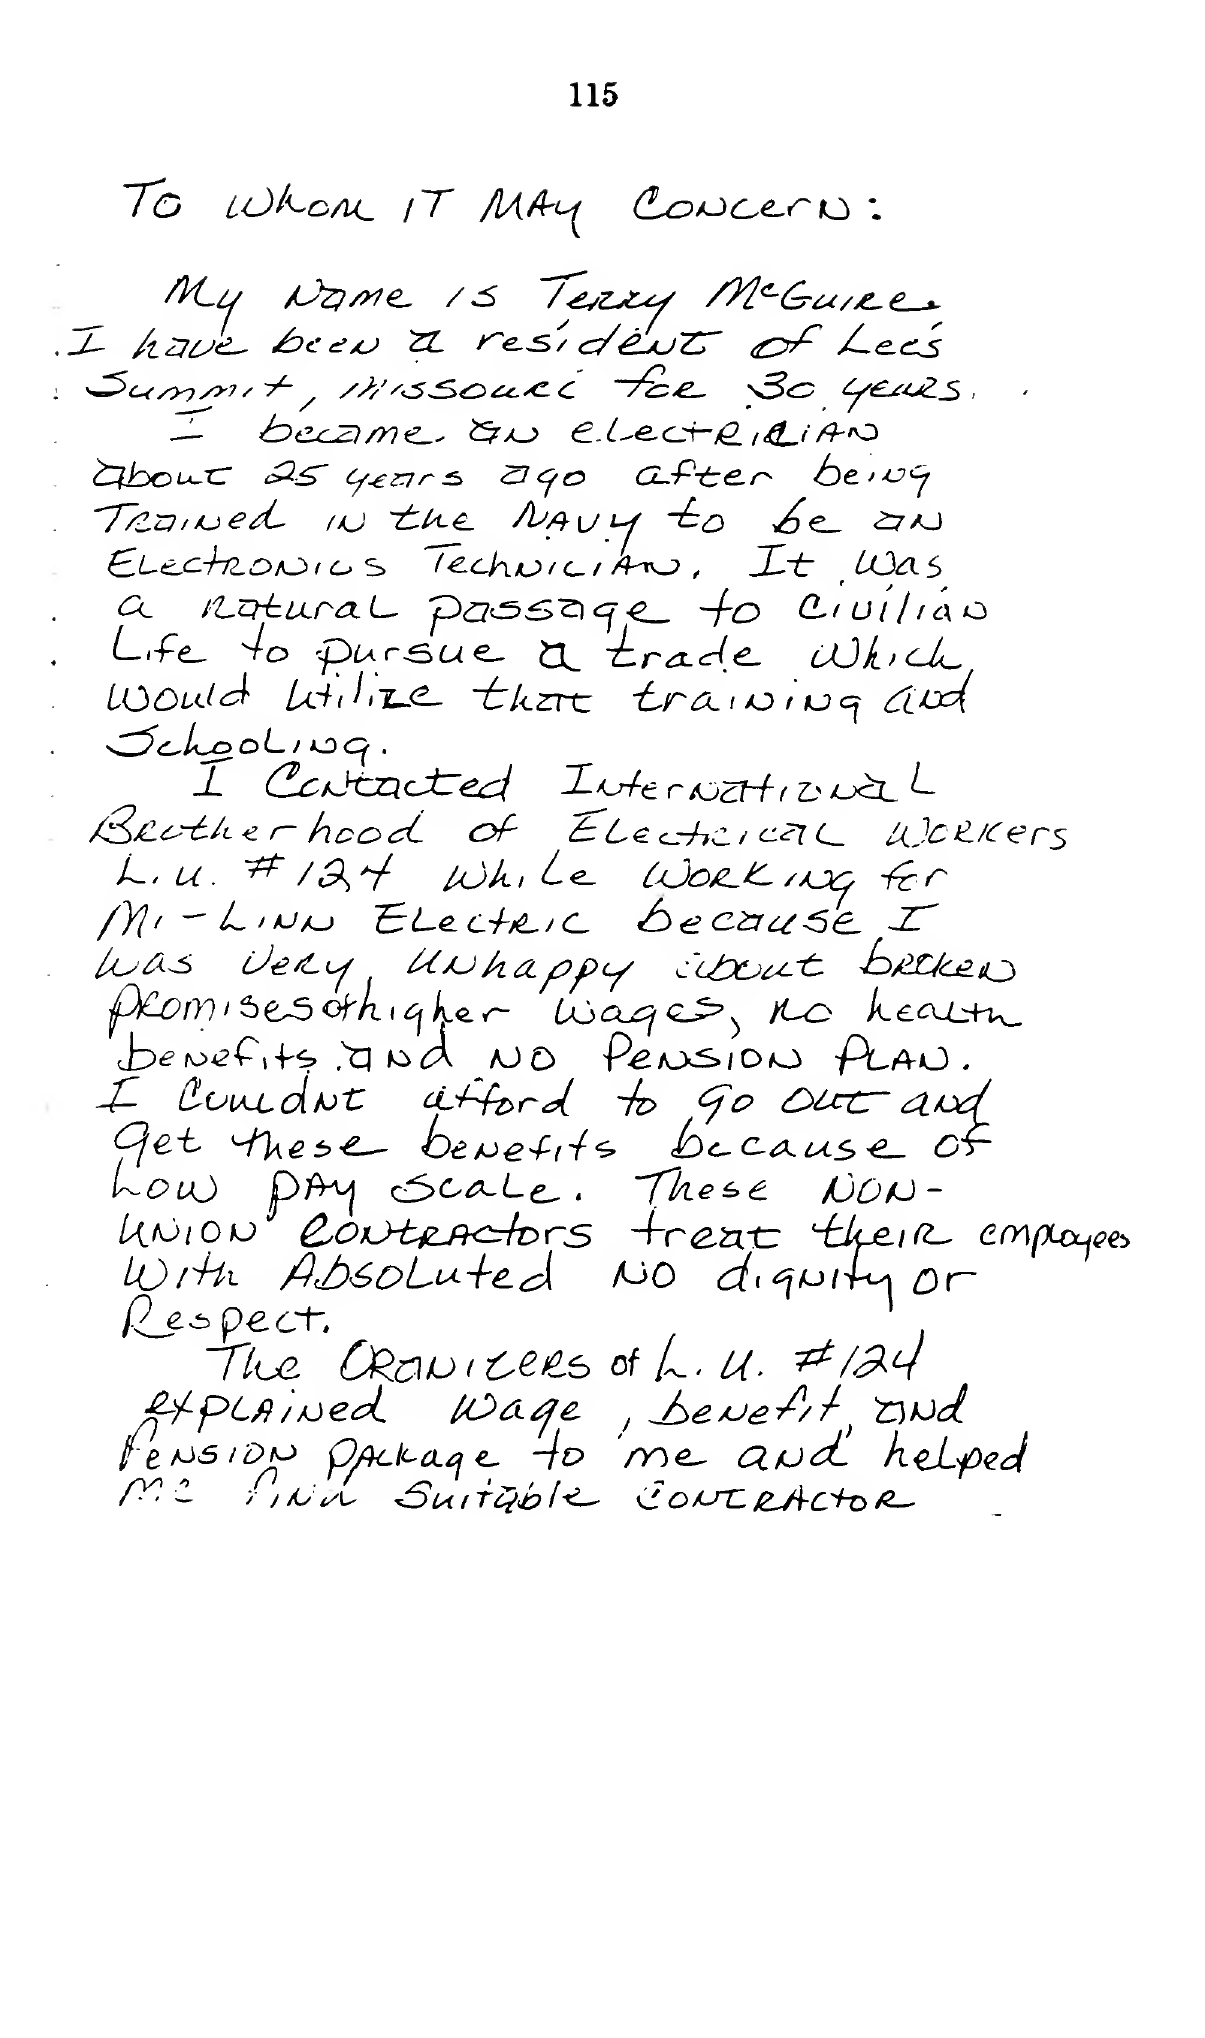 115
To Whom IT MAy Concern:
My Name is Terry McGuire.
I have been a resident of Lee's
Summit, Missouri for 30 years.
I became an electrician
about 25 years ago after being
Trained in the Navy to be an
Electronics Technician. It was
a natural passage to civilian
Life to pursue a trade which
would utilize that training and
Schooling.
I Contacted International
Brotherhood of Electrical Workers
L.U. #124 while working for
Mi-Linn Electric because I
was very unhappy about broken
promises of higher wages, no health
benefits and no Pension Plan.
I Couldnt afford to go out and
get these benefits because of
Low pay scale. These non-
union contractors treat their employees
With Absoluted no dignity or
Respect.
The Oranizers of L.U. #124
explained wage, benefit, and
Pension package to me and helped
me find suitable contractor